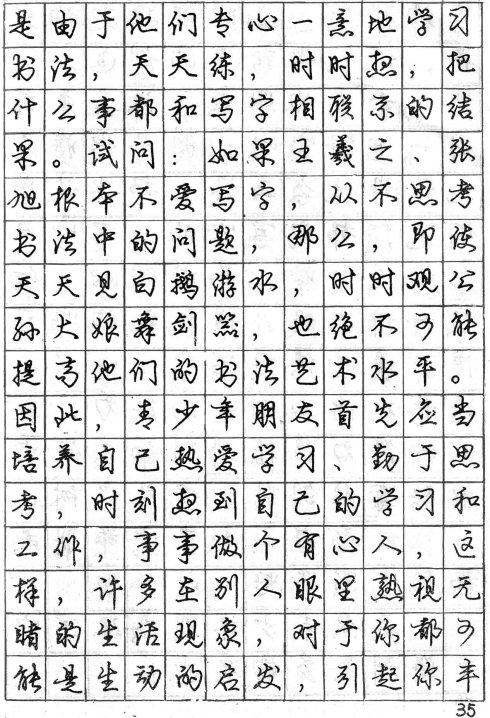 是由于他们专心一意地学习
书法，天天练，时时想，把
什么事都和写字相联系的结
果。试问：如果王羲之、张
旭根本不爱写字，从不思考
书法中的问题，那么，即使
天天见白鹅游水，时时观公
孙大娘舞剑器，也绝不可能
提高他们的书法艺术水平。
因此，青少年朋友首先应当
培养自己热爱学习、勤于思
考，时刻想到自己的学习和
工作，事事做个有心人，这
样，许多在别人眼里熟视无
睹的生活现象，对于你都可
能是生动的启发，引起你丰
35